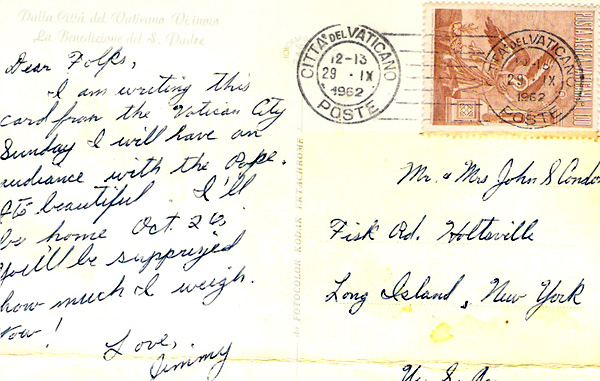 Dalla Città del Vaticano Vi invio
La Benedizione del S. Padre
Dear Folks,
I am writing this
card from the Vatican City
Sunday I will have an
audiance with the Pope.
Its beautiful. I'll
be home Oct. 2
You'll be supprized
how much I weigh.
Now!
Love,
Jimmy
CITTA' DEL VATICANO
12-13
29 · IX
1962
POSTE
CITTA' DEL VATICANO
29 · IX
1962
POSTE
POSTE
FOTOCOLOR KODAK EKTACHROME
Mr. & Mrs John S Condon
Fisk Rd. Holtsville
Long Island, New York